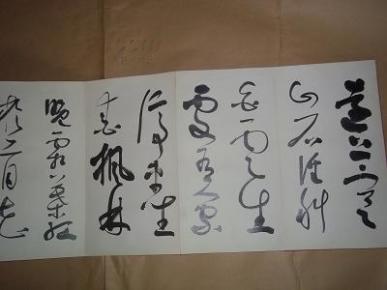 遠上寒
山石徑斜
白雲生
處有人家
停車坐
愛楓林
晚霜葉紅
於二月花